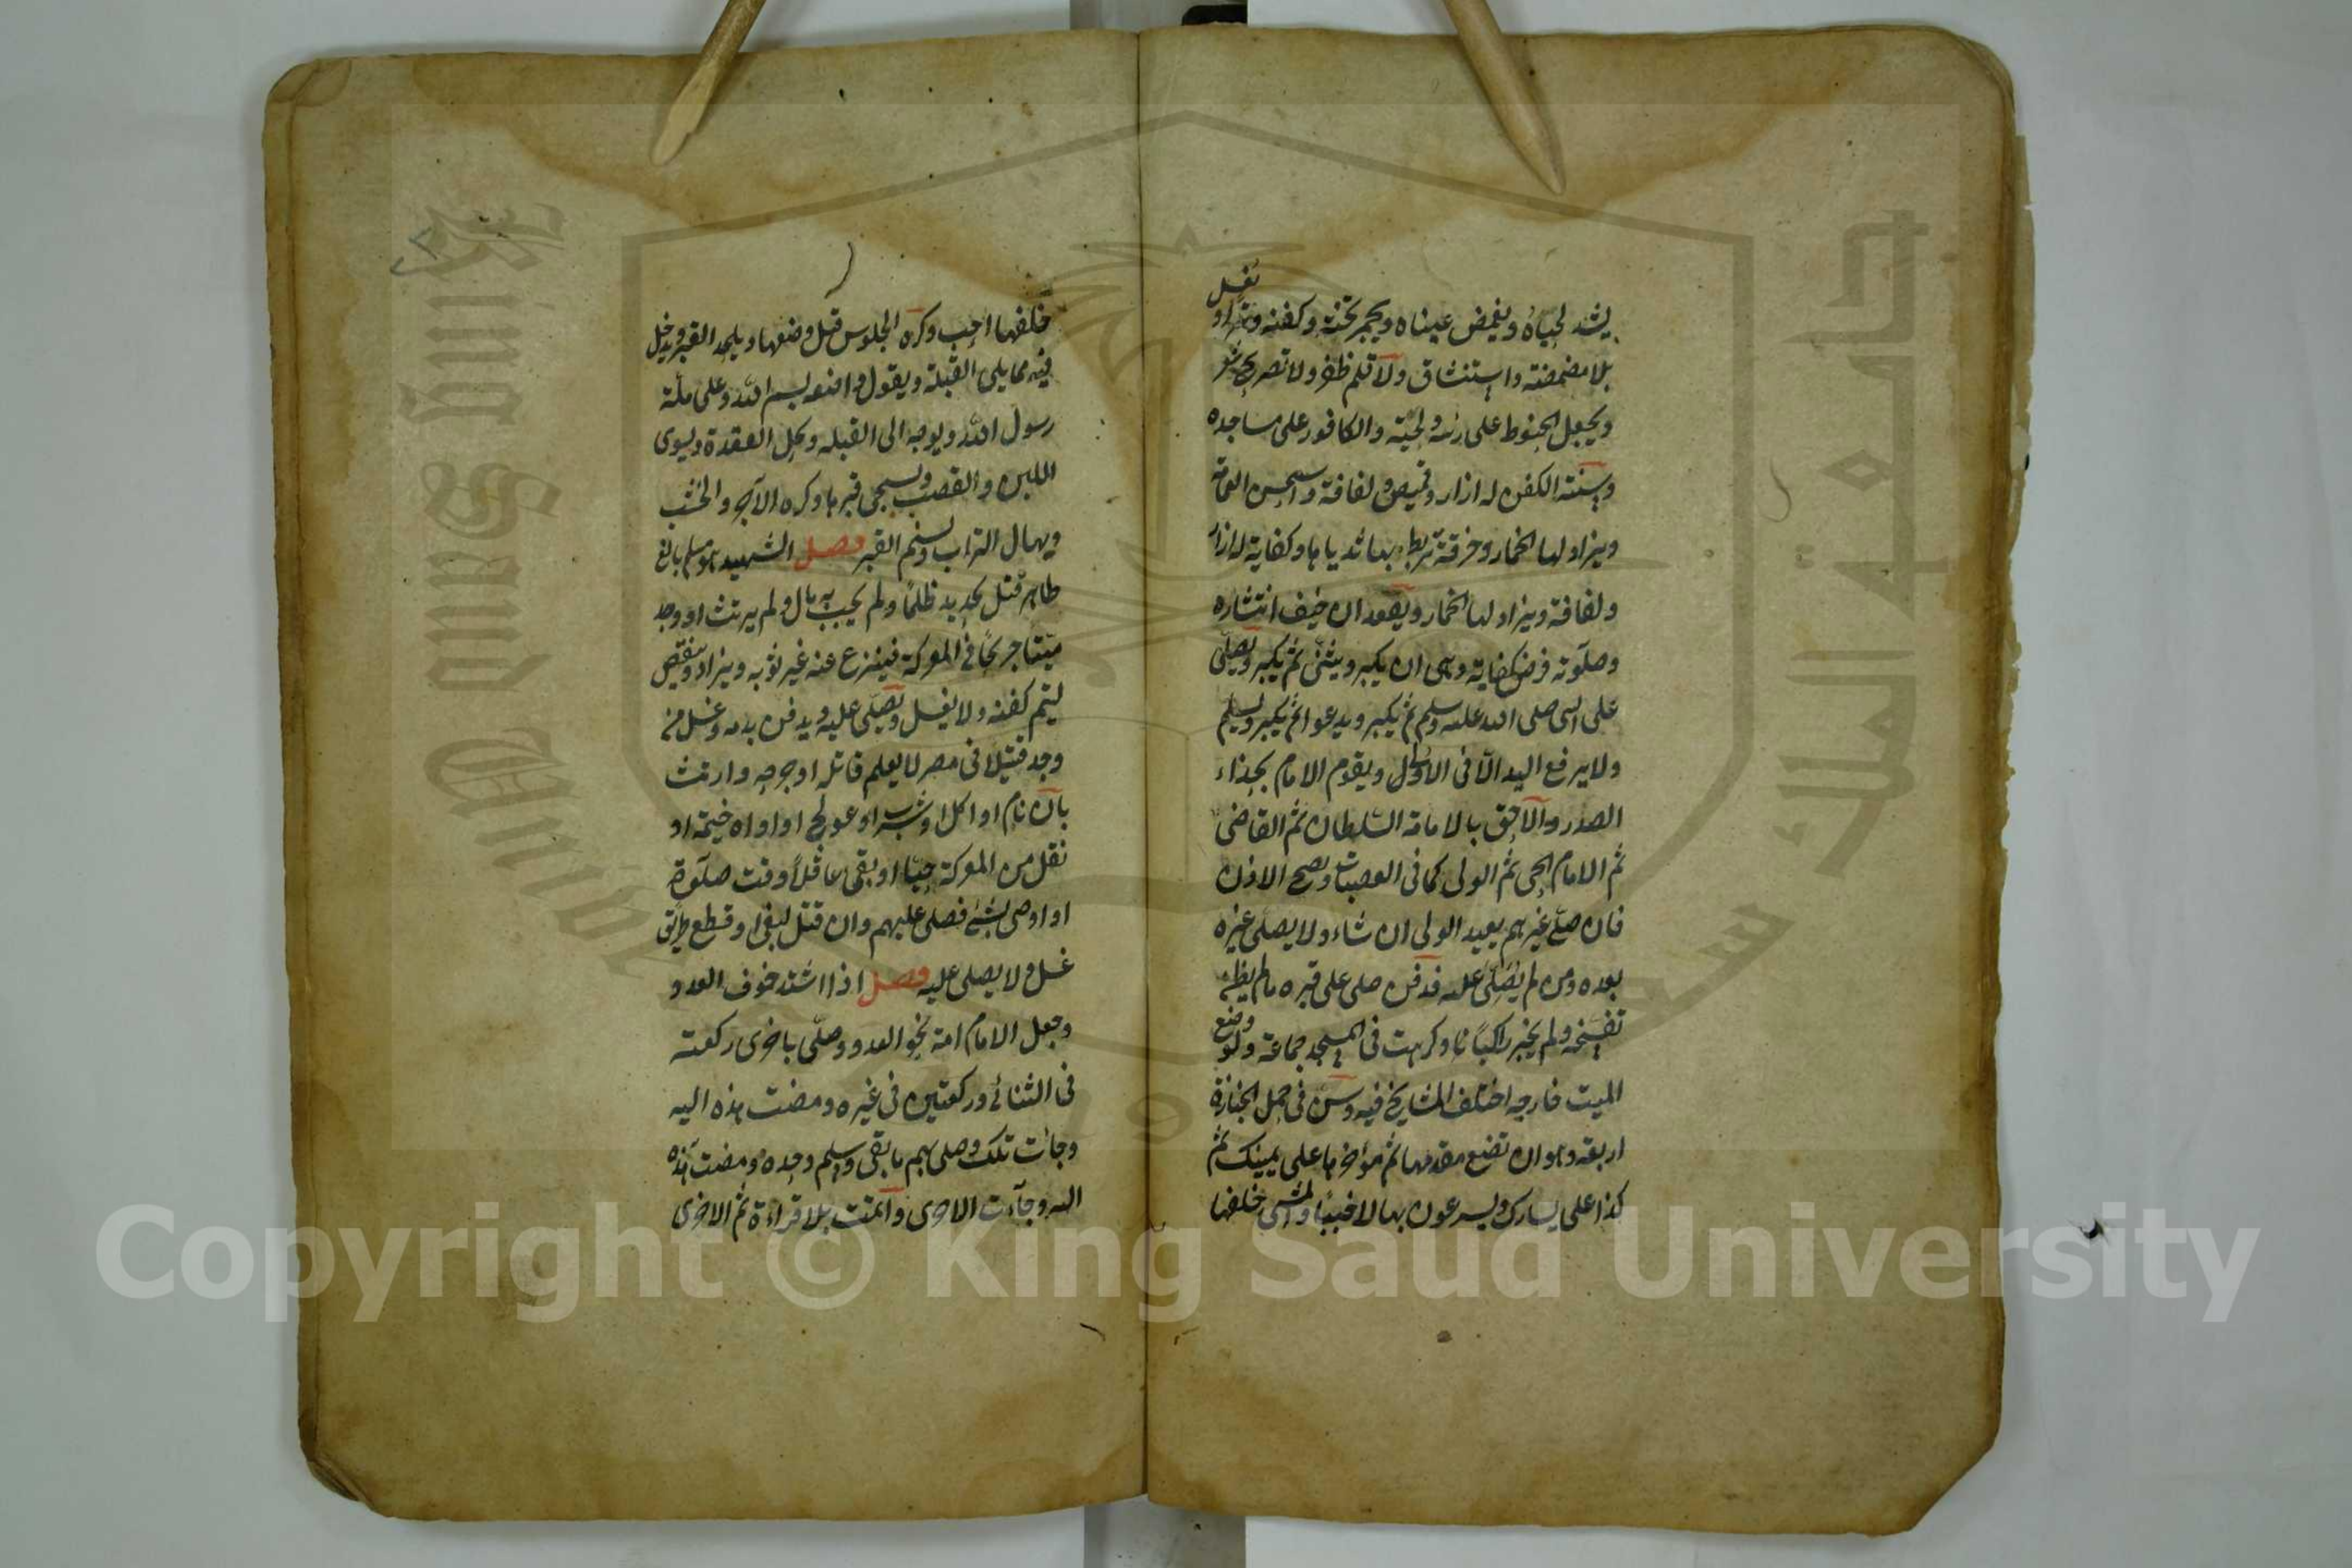 يشد لحياه ويغمض عيناه ويجمر تخته وكفنه وترا ويغسل
بلا مضمضة واستنشاق ولا قلم ظفر ولا تصريح شعر
ويجعل الحنوط على رأسه ولحيته والكافور على مساجده
وسنة الكفن له ازار وقميص ولفافة واستحسن العمامة
ويزاد لها الخمار وخرقة تربط بها ثدياها وكفاية له ازار
ولفافة ويزاد لها الخمار ويعقد ان خيف انتشاره
وصلوته فرض كفاية وهى ان يكبر ويثنى ثم يكبر ويصلى
على النبى صلى الله عليه وسلم ثم يكبر ويدعوا ثم يكبر ويسلم
ولا يرفع اليد الا فى الاول ويقوم الامام بحذاء
الصدر والاحق بالامامة السلطان ثم القاضى
ثم الامام الحى ثم الولى كما فى العصبات ويصح الاذن
فان صلى غيرهم يعيد الولى ان شاء ولا يصلى غيره
بعده ومن لم يصلى عليه فدفن صلى على قبره مالم يظن
تفسخه ولم يجز راكبا وكرهت فى المسجد جماعة ولو وضع
الميت خارجه اختلف المشايخ فيه وسن فى حمل الجنازة
اربعة وهو ان تضع مقدمها ثم مؤخرها على يمينك ثم
كذا على يسارك ويسرعون بها لا خببا والمشى خلفها
خلفها احب وكره الجلوس قبل وضعها ويلحد القبر ويدخل
فيه مما يلى القبلة ويقول واضعه بسم الله وعلى ملة
رسول الله ويوجه الى القبلة ويحل العقدة ويسوى
اللبن والقصب ويسجى قبرها وكره الآجر والخشب
ويهال التراب ويسنم القبر فصل الشهيد هو مسلم بالغ
طاهر قتل بحديد ظلما ولم يجب به مال ولم يرتث او وجد
ميتا جريحا فى المعركة فينزع عنه غير ثوبه ويزاد وينقص
ليتم كفنه ولا يغسل ويصلى عليه ويدفن بدمه وغسل من
وجد قتيلا فى مصر لا يعلم قاتله او جرحه وارتث
بان نام او اكل او شرب او عولج او اواه خيمة او
نقل من المعركة حيا او بقى عاقلا وقت صلوة
او اوصى بشئ فصلى عليهم وان قتل لبغى او قطع طريق
غسل ولا يصلى عليه فصل اذا اشتد خوف العدو
وجعل الامام امة نحو العدو وصلى باخرى ركعة
فى الثنائى وركعتين فى غيره ومضت هذه اليه
وجائت تلك وصلى بهم ما بقى وسلم وحده ومضت هذه
اليه وجاءت الاخرى واتمت بلا قراءة ثم الاخرى
Copyright © King Saud University